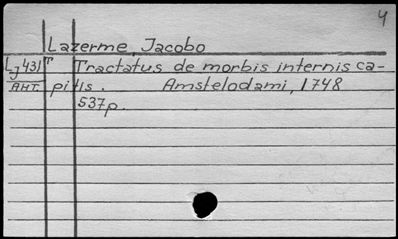 4
Lazerme, Jacobo
Lj431 T Tractatus de morbis internis ca-
AHT. pitis. Amstelodami, 1748
537p.